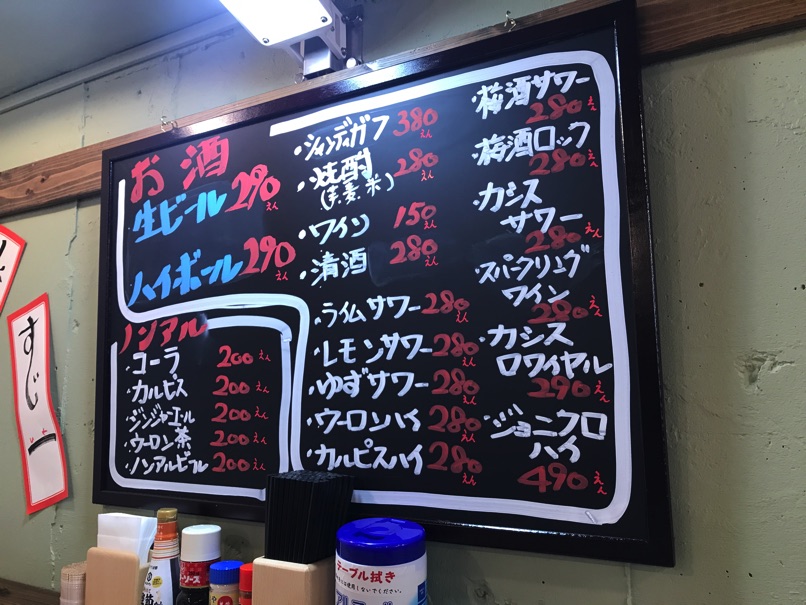 お酒
生ビール 290えん
ハイボール 290えん
ノンアル
コーラ 200えん
カルピス 200えん
ジンジャーエール 200えん
ウーロン茶 200えん
ノンアルビール 200えん
・シャンディガフ 380えん
・焼酎 280えん
(芋.麦.米)
・ワイン 150えん
・清酒 280えん
・ライムサワー 280えん
・レモンサワー 280えん
・ゆずサワー 280えん
・ウーロンハイ 280えん
・カルピスハイ 280えん
・梅酒サワー
280えん
・梅酒ロック
280えん
・カシス
サワー
280えん
・スパークリング
ワイン
280えん
・カシス
ロワイヤル
290えん
・ジョニクロ
ハイ
490えん
すじ
テーブル拭き